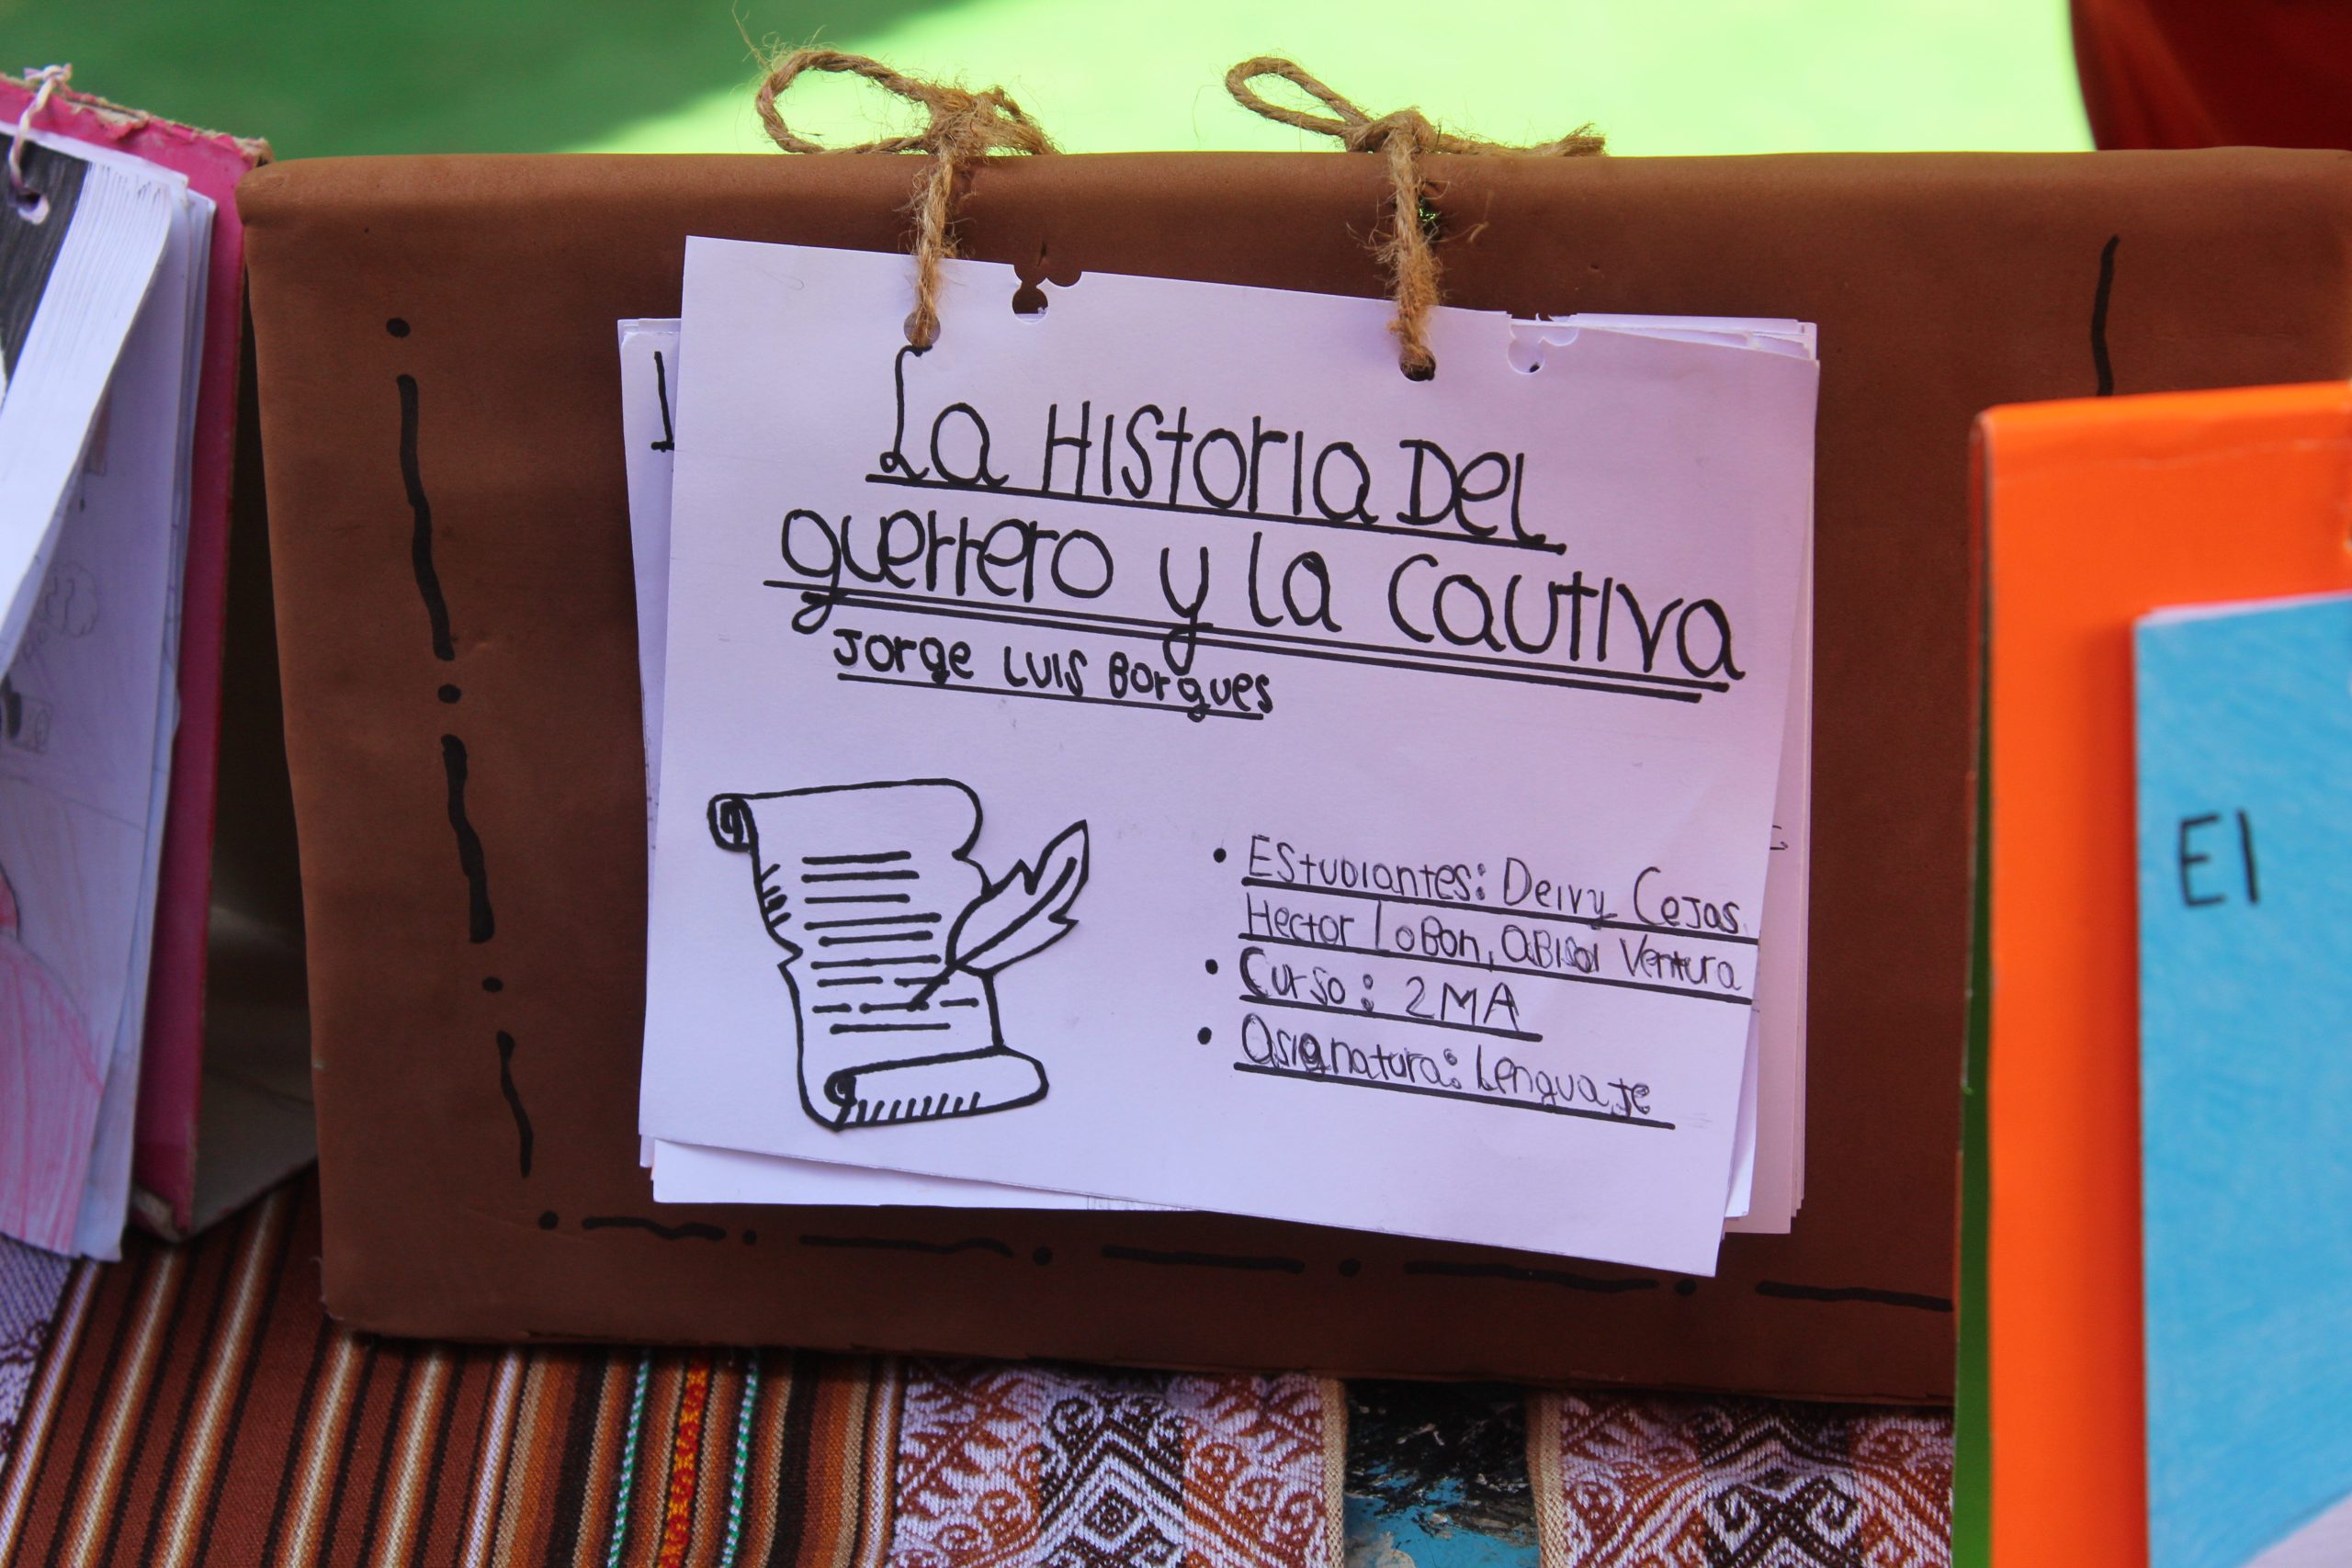 La Historia Del
guerrero y la cautiva
Jorge Luis Borgues
• Estudiantes: Deivy Cejas
Hector LoBon, aBisai Ventura
• Curso: 2MA
• Asignatura: Lenguaje
El